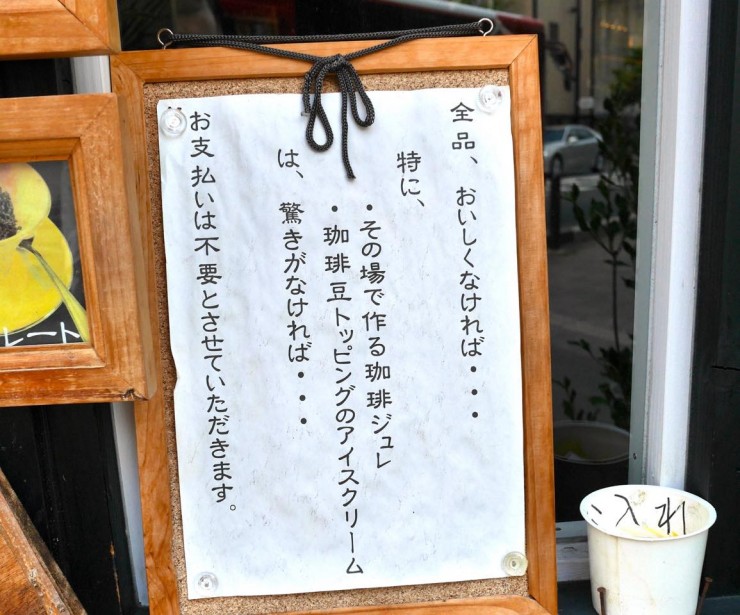 全品、おいしくなければ・・・
特に、
・その場で作る珈琲ジュレ
・珈琲豆トッピングのアイスクリーム
は、驚きがなければ・・・
お支払いは不要とさせていただきます。
レート
入れ